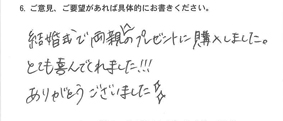 6. ご意見、ご要望があれば具体的にお書きください。
結婚式で両親へのプレゼントに購入しました。
とても喜んでくれました!!!
ありがとうございました